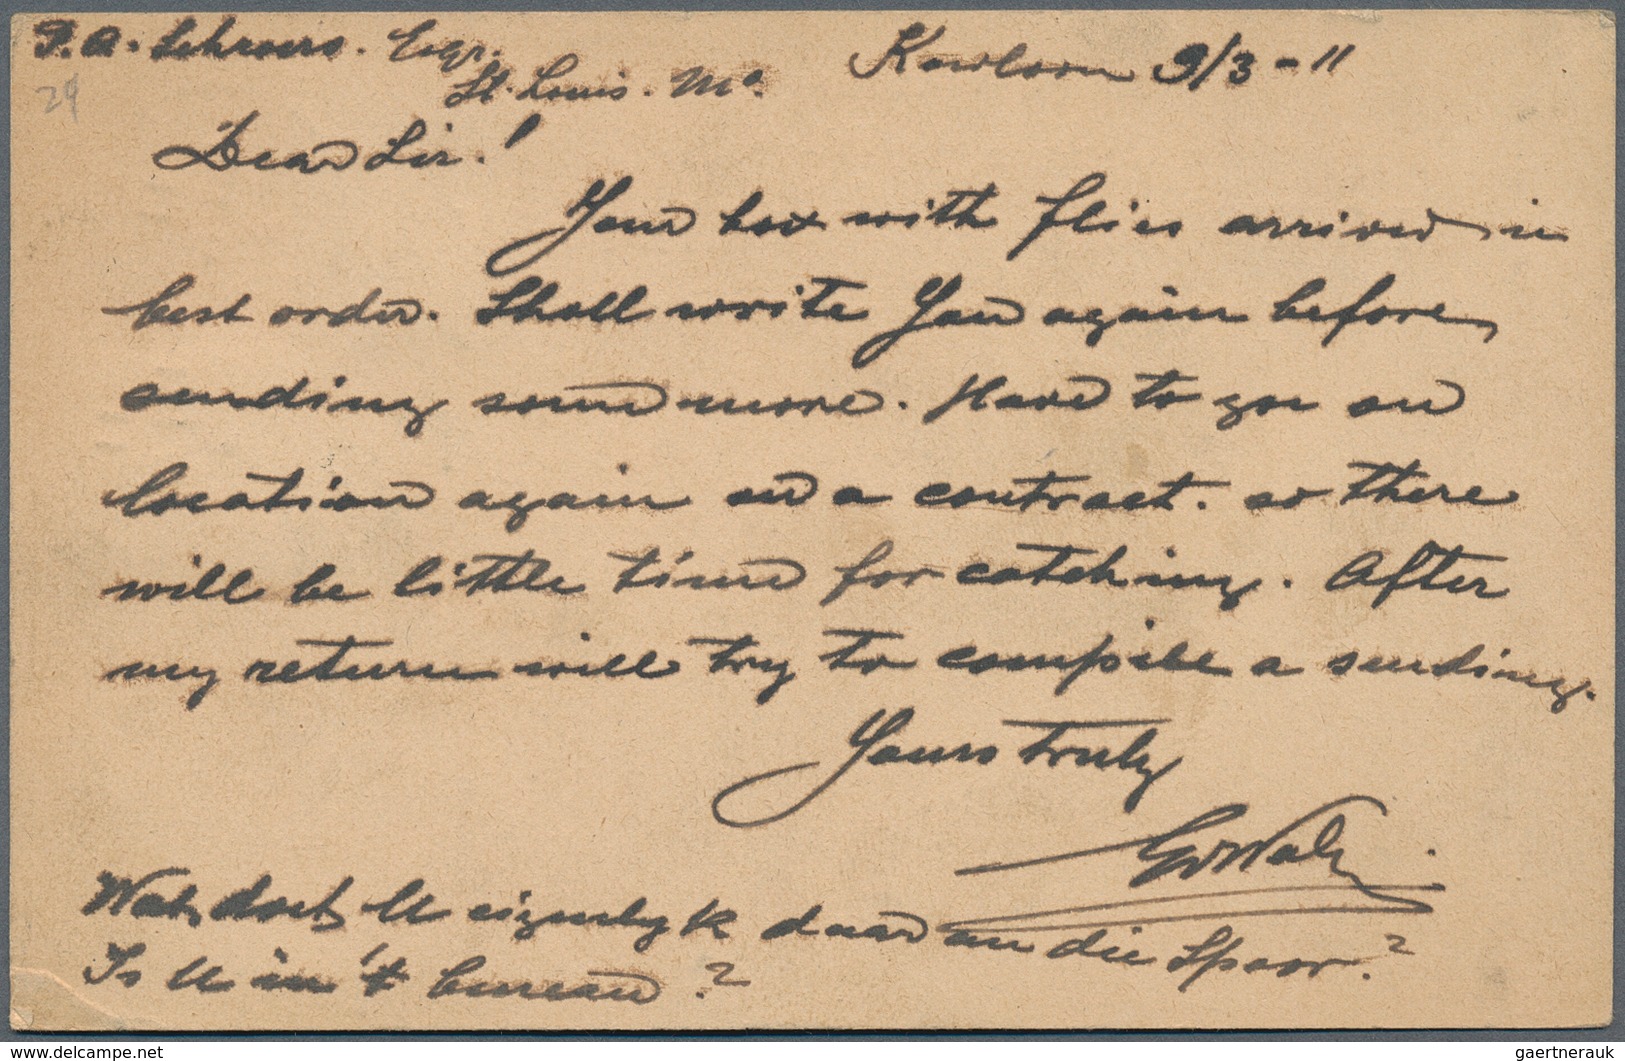 P. A. Schroers. Esqr.
St. Louis. Mo.
Kowloon 9/3-11
29
Dear Sir!
Your box with flies arrived in
best order. Shall write You again before
sending some more. Have to go on
location again on a contract. so there
will be little time for catching. After
my return will try to compile a sending.
Yours truly
Wat doet U eigenlyk daar an die Spoor?
Is U in 't bureau?
www.delcampe.net
gaertnerauk